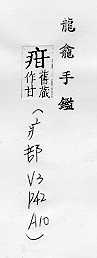 龍龕手鑑
疳
舊藏
作甘
(疒部
V3
P42
A10)